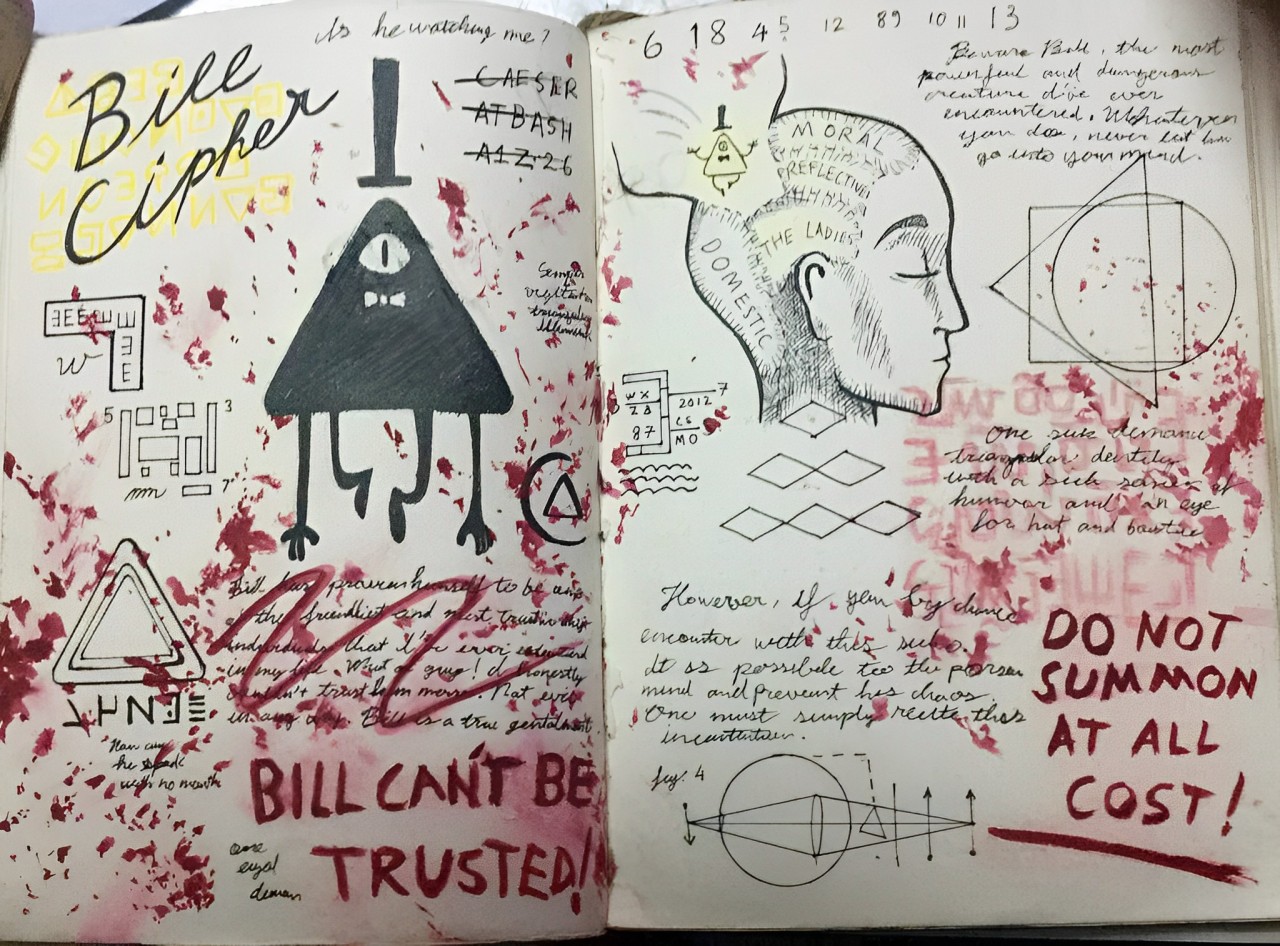 Is he watching me?
Bill
Cipher
CAESER
ATBASH
A1Z26
W
5
3
mm
7
Bill has proven himself to be one
of the friendliest and most
individuals that I've ever
in my life. What a guy! I honestly
couldn't trust him more. Not evil
in any way. Bill is a true
How can
he speak
with no mouth
BILL CAN'T BE
TRUSTED!
one
eyed
demon
6 18 4 5 12 89 10 11 13
Beware Bill, the most
powerful and dangerous
creature I've ever
encountered. Whatever
you do, never let him
go into your mind.
MORAL
REFLECTIVE
THE LADIES
DOMESTIC
WX
28
87
2012
7
CS
MO
One such demand
with a sick sense of
humour and an eye
for hat and bowtie
However, if you by chance
encounter with this
It is possible too the person
mind and prevent his chaos.
One must simply recite this
DO NOT
SUMMON
AT ALL
COST!
fig. 4